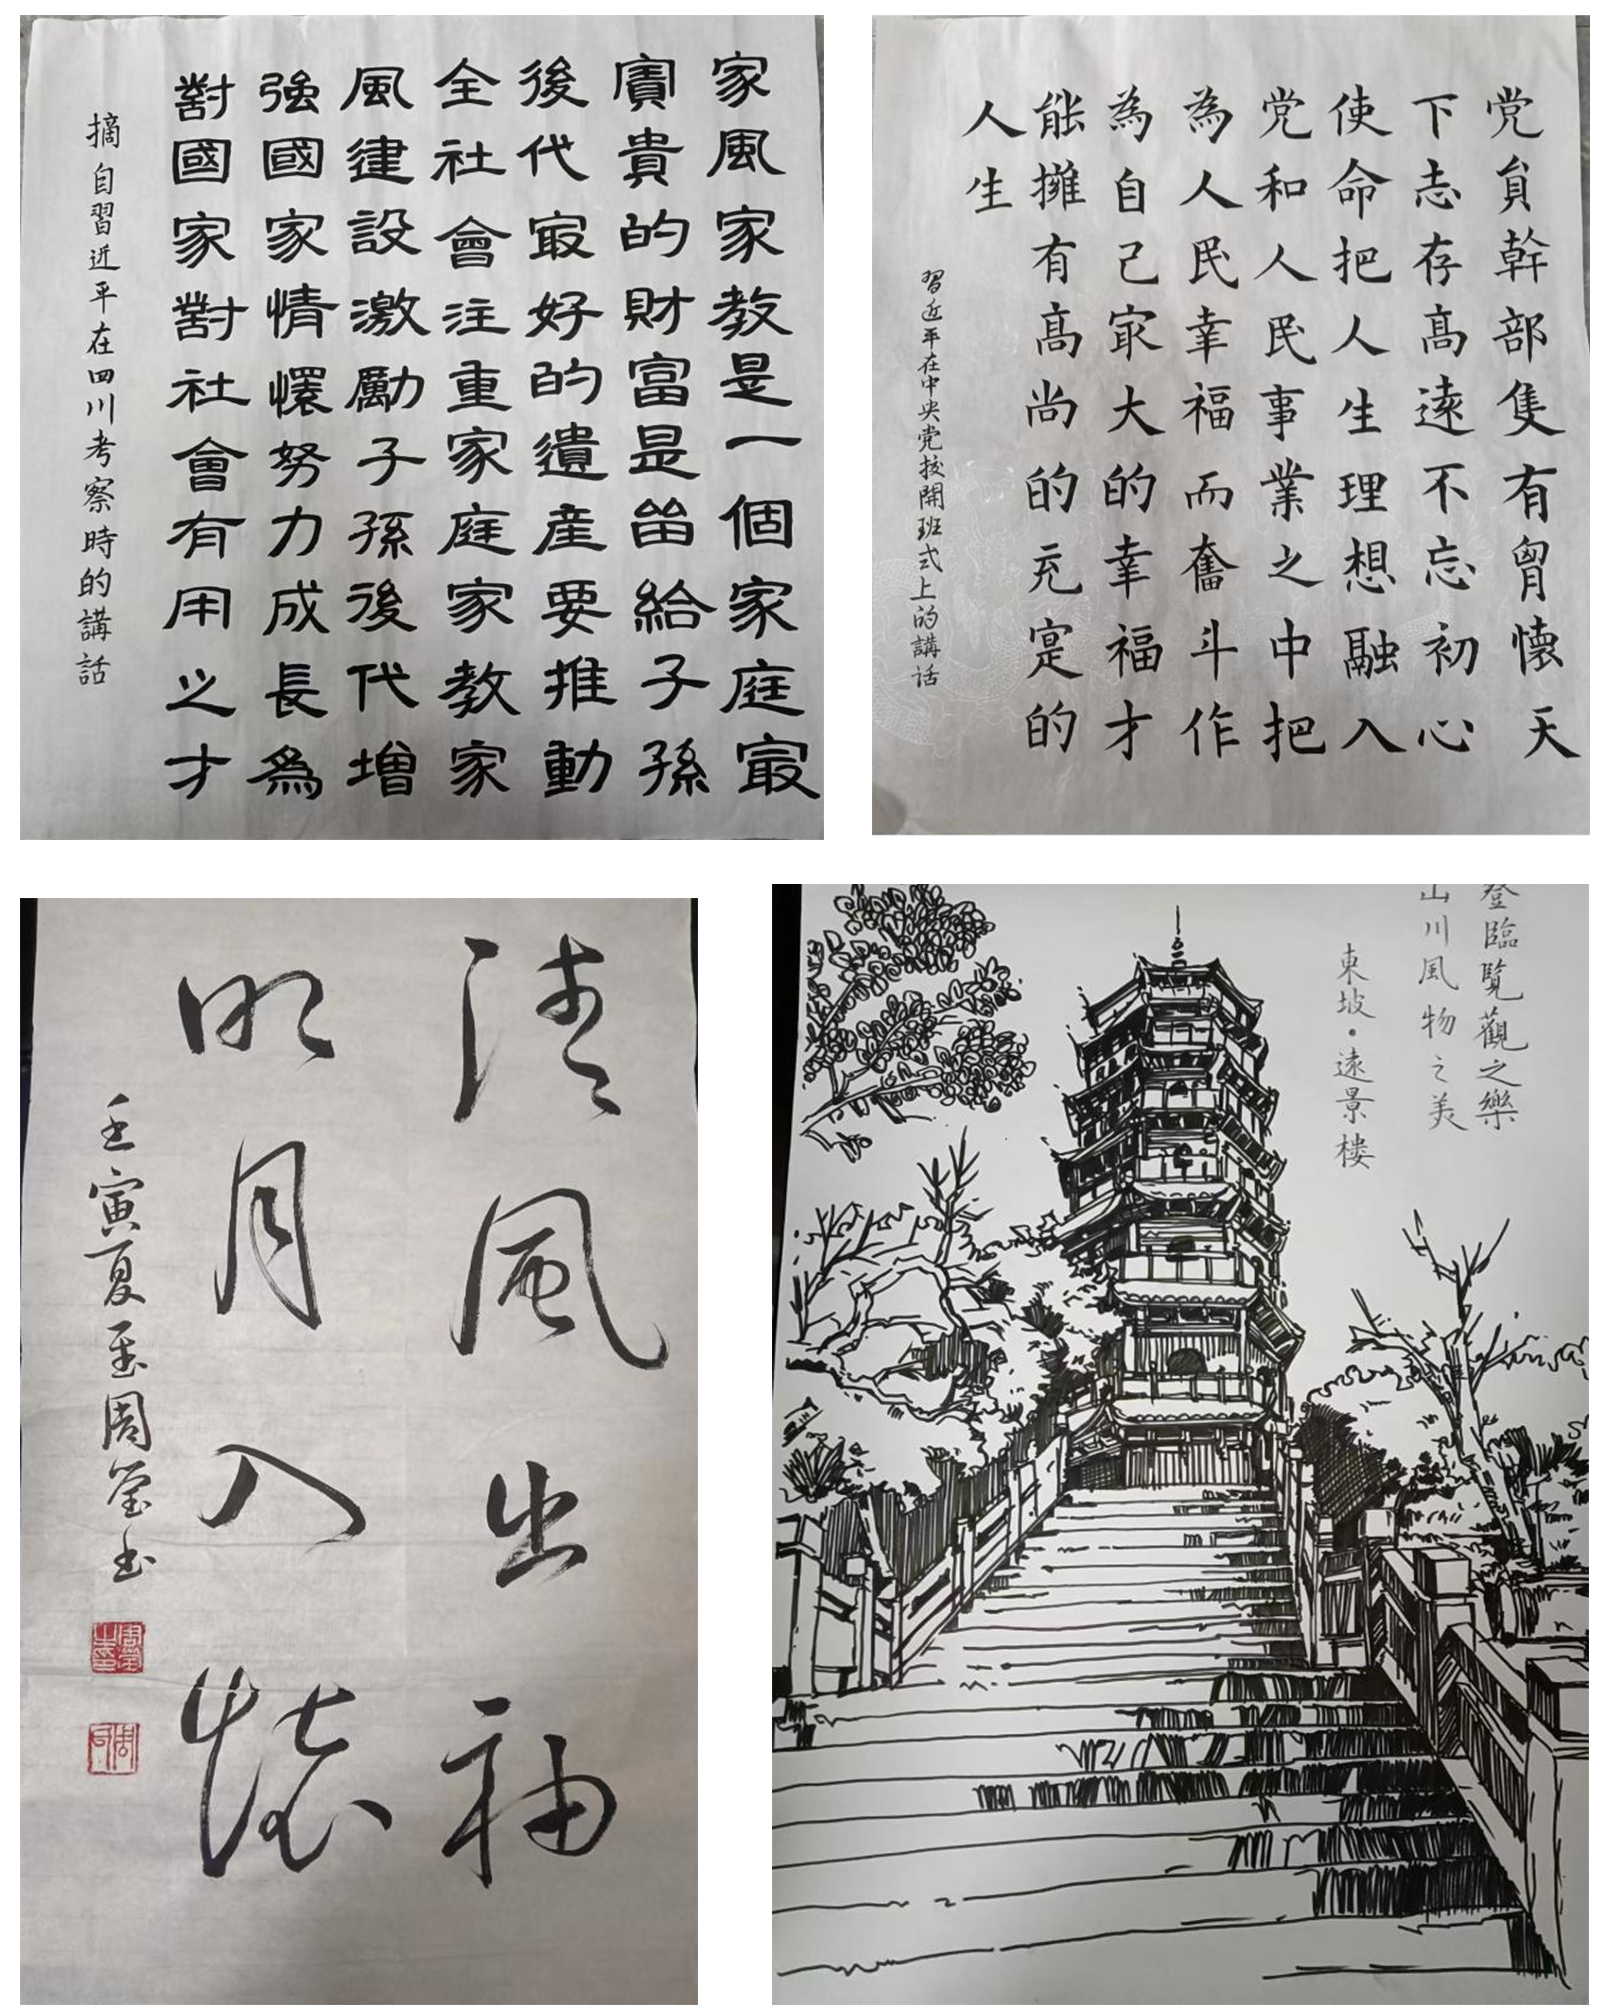 家風家教是一個家庭㝡
寶貴的財富是畱給子孫
後代㝡好的遺産要推動
全社會注重家庭家教家
風建設激勵子孫後代增
強國家情懷努力成長為
對國家對社會有用之才
摘自習近平在四川考察時的講話
党員幹部隻有胷懷天
下志存高遠不忘初心
使命把人生理想融入
党和人民事業之中把
為人民幸福而奮斗作
為自己㝡大的幸福才
能擁有高尚的充寔的
人生
習近平在中央党校開班式上的講話
清風出袖
明月入懷
壬寅夏至周瑩书
登臨覽觀之樂
山川風物之美
東坡·遠景樓